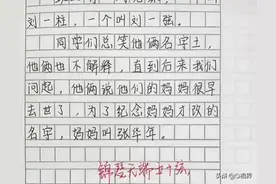 刘一柱，一个叫刘一弦。
同学们总笑他俩名字土，
他俩也不解释，直到后来我们
问起，他俩说他们的妈妈很早
去世了，为了纪念妈妈才改的
名字，妈妈叫张华年。
锦瑟无端五十弦